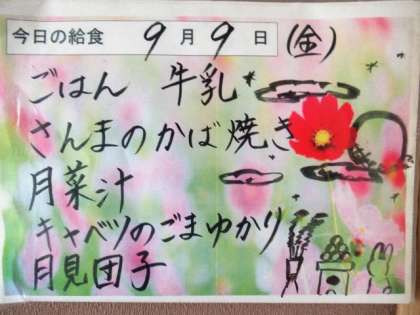 今日の給食 9月9日(金)
ごはん 牛乳
さんまのかば焼き
月菜汁
キャベツのごまゆかり
月見団子